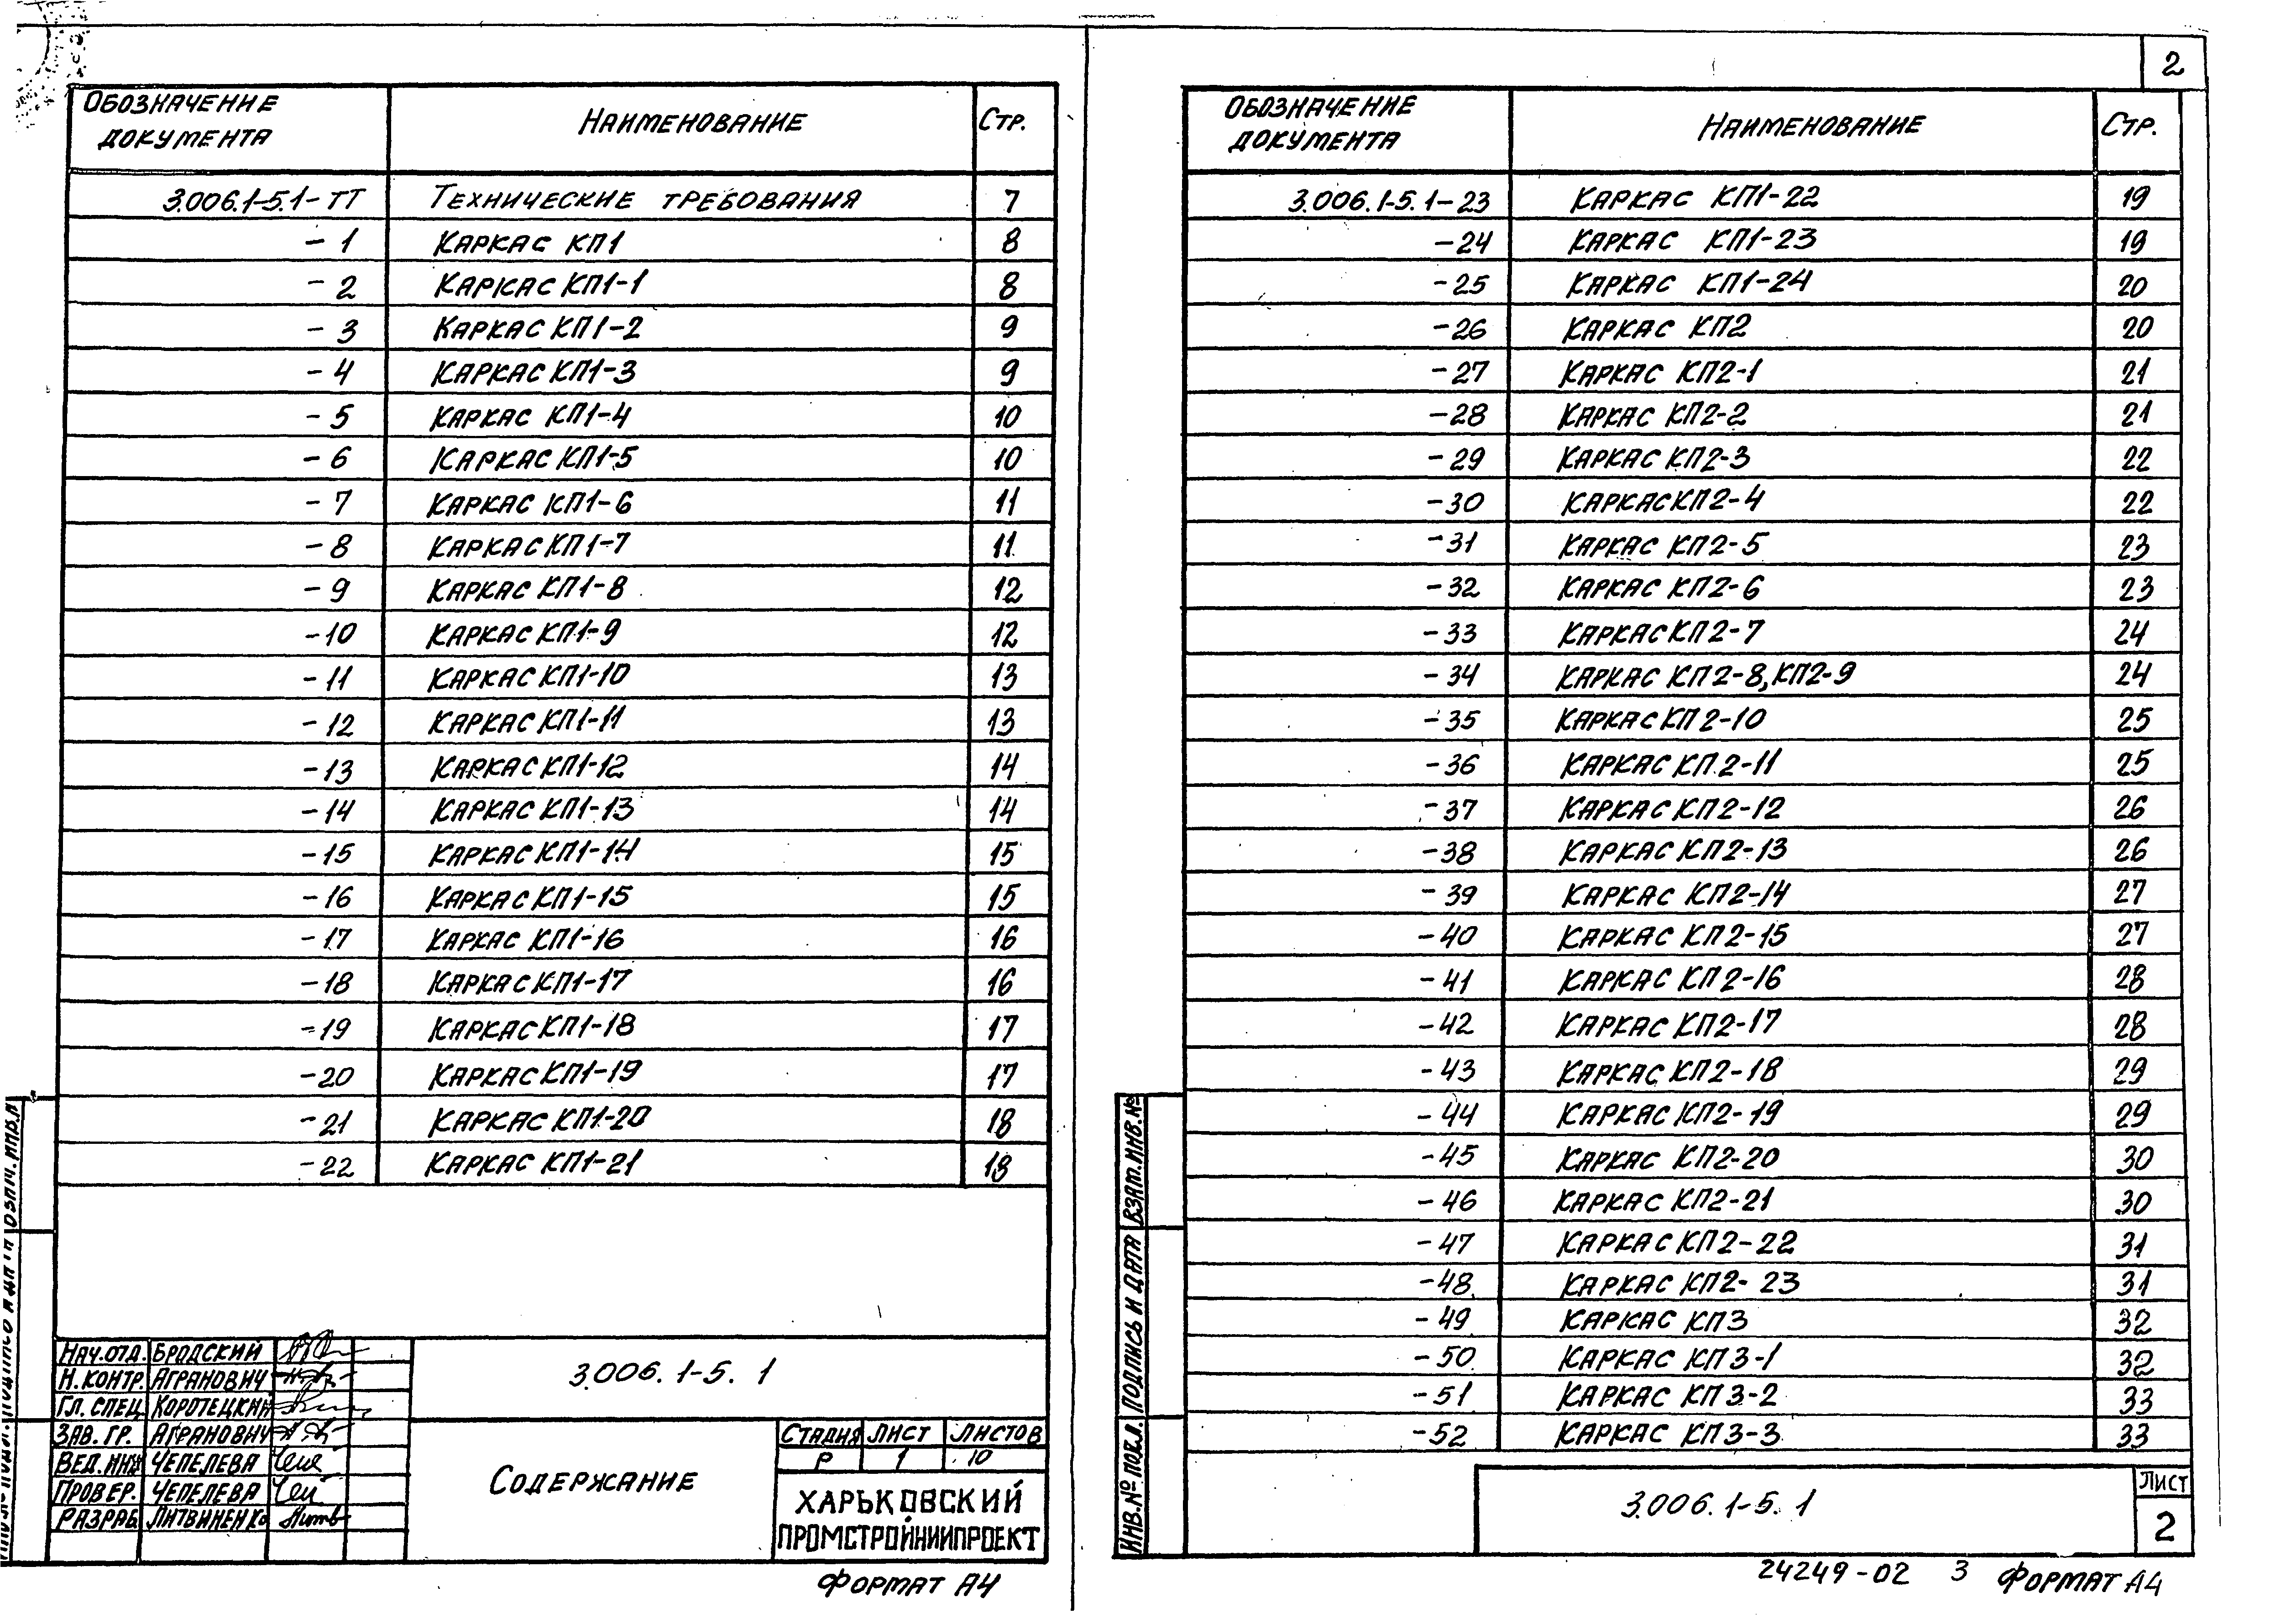 Обозначение документа Наименование Стр.
3.006.1-5.1-ТТ Технические требования 7
-1 Каркас КП1 8
-2 Каркас КП1-1 8
-3 Каркас КП1-2 9
-4 Каркас КП1-3 9
-5 Каркас КП1-4 10
-6 Каркас КП1-5 10
-7 Каркас КП1-6 11
-8 Каркас КП1-7 11
-9 Каркас КП1-8 12
-10 Каркас КП1-9 12
-11 Каркас КП1-10 13
-12 Каркас КП1-11 13
-13 Каркас КП1-12 14
-14 Каркас КП1-13 14
-15 Каркас КП1-14 15
-16 Каркас КП1-15 15
-17 Каркас КП1-16 16
-18 Каркас КП1-17 16
-19 Каркас КП1-18 17
-20 Каркас КП1-19 17
-21 Каркас КП1-20 18
-22 Каркас КП1-21 18
Нач.отд. Бродский
Н.контр. Агранович
Гл. спец. Коротецкий
Зав. гр. Агранович
Вед. инж Чепелева
Провер. Чепелева
Разраб. Литвиненко
3.006.1-5.1
Содержание
Стадия Лист Листов
Р 1 10
ХАРЬКОВСКИЙ
ПРОМСТРОЙНИИПРОЕКТ
Формат А4
2
Обозначение документа Наименование Стр.
3.006.1-5.1-23 Каркас КП1-22 19
-24 Каркас КП1-23 19
-25 Каркас КП1-24 20
-26 Каркас КП2 20
-27 Каркас КП2-1 21
-28 Каркас КП2-2 21
-29 Каркас КП2-3 22
-30 Каркас КП2-4 22
-31 Каркас КП2-5 23
-32 Каркас КП2-6 23
-33 Каркас КП2-7 24
-34 Каркас КП2-8, КП2-9 24
-35 Каркас КП2-10 25
-36 Каркас КП2-11 25
-37 Каркас КП2-12 26
-38 Каркас КП2-13 26
-39 Каркас КП2-14 27
-40 Каркас КП2-15 27
-41 Каркас КП2-16 28
-42 Каркас КП2-17 28
-43 Каркас КП2-18 29
-44 Каркас КП2-19 29
-45 Каркас КП2-20 30
-46 Каркас КП2-21 30
-47 Каркас КП2-22 31
-48 Каркас КП2-23 31
-49 Каркас КП3 32
-50 Каркас КП3-1 32
-51 Каркас КП3-2 33
-52 Каркас КП3-3 33
Инв.№ подл. Подпись и дата Взам.инв.№
3.006.1-5.1
Лист
2
24249-02 3 Формат А4